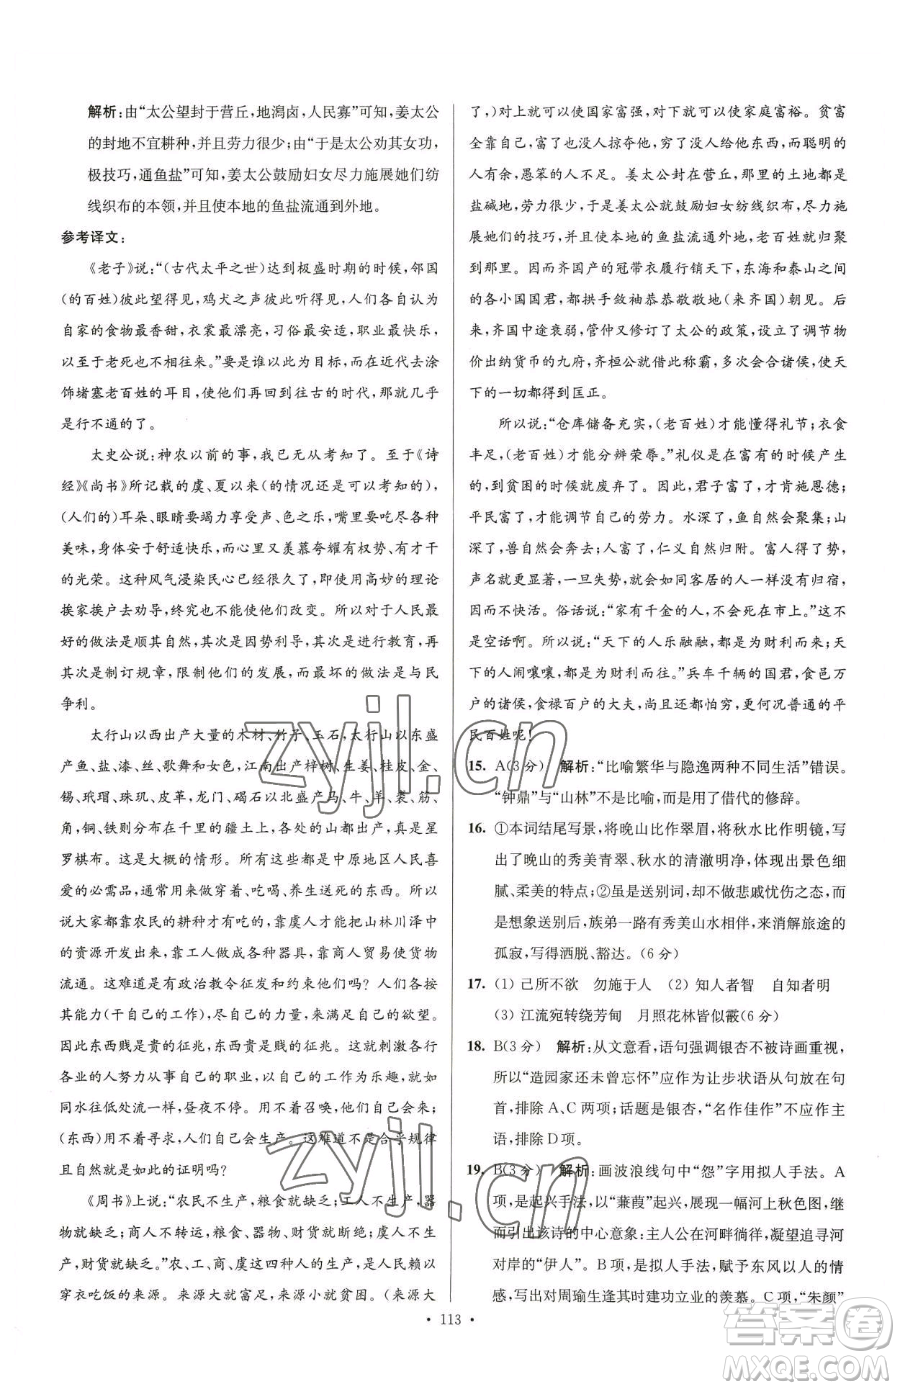 解析:由“太公望封于营丘,地潟卤,人民寡”可知,姜太公
的封地不宜耕种,并且劳力很少;由“于是太公劝其女功,
极技巧,通鱼盐”可知,姜太公鼓励妇女尽力施展她们纺
线织布的本领,并且使本地的鱼盐流通到外地。
参考译文:
《老子》说:“(古代太平之世)达到极盛时期的时候,邻国
(的百姓)彼此望得见,鸡犬之声彼此听得见,人们各自认为
自家的食物最香甜,衣裳最漂亮,习俗最安适,职业最快乐,
以至于老死也不相往来。”要是谁以此为目标,而在近代去涂
饰堵塞老百姓的耳目,使他们再回到往古的时代,那就几乎
是行不通的了。
太史公说:神农以前的事,我无从考知了。至于《诗
经》《尚书》所记载的虞、夏以来(的情况还是可以考知的),
(人们的)耳朵、眼睛要竭力享受声、色之乐,嘴里要吃尽各种
美味,身体安于舒适快乐,而心里又羡慕夸耀有权势、有才干
的光荣。这种风气浸染民心已经很久了,即使用高妙的理论
挨家挨户去劝导,终究也不能使他们改变。所以对于人民最
好的做法是顺其自然,其次是因势利导,其次是进行教育,再
其次是制订规章,限制他们的发展,而最坏的做法是与民
争利。
太行山以西出产大量的木材、竹子、玉石,太行山以东盛
产鱼、盐、漆、丝、歌舞和女色,江南出产樟树、生姜、桂皮、金、
锡、玳瑁、珠玑、皮革,龙门、碣石以北盛产马、牛、羊、裘、筋、
角,铜、铁则分布在千里的疆土上,各处的山都出产,真是星
罗棋布。这是大概的情形。所有这些都是中原地区人民喜
爱的必需品,通常用来做穿着、吃喝、养生送死的东西。所以
说大家都靠农民的耕种才有吃的,靠虞人才能把山林川泽中
的资源开发出来,靠工人做成各种器具,靠商人贸易使货物
流通。这难道是有政治教令征发和约束他们吗?人们各按其
能力(干自己的工作),尽自己的力量,来满足自己的欲望。
因此东西贱是贵的征兆,贵是贱的征兆。这就刺激各行各
业的人努力从事自己的职业,以自己的工作为乐趣,就如
同水往低处流一样,昼夜不停。用不着召唤,他们自己会来;
(东西)用不着寻求,人们自己会生产。这难道不是合乎规律
且自然就是如此的证明吗?
《周书》上说:“农民不生产,粮食就缺乏;工人不生产,器
物就缺乏;商人不转运,粮食、器物、财货就断绝;虞人不生
产,财货就缺乏。”农、工、商、虞这四种人的生产,是人民赖以
穿衣吃饭的来源。来源大就富足,来源小就贫困。(来源大
了,)对上就可以使国家富强,对下就可以使家庭富裕。贫富
全靠自己,富了也没人掠夺他,穷了没人给他东西,而聪明的
人有余,愚笨的人不足。姜太公封在营丘,那里的土地都是
盐碱地,劳力很少,于是姜太公就鼓励妇女纺线织布,尽力施
展她们的技巧,并且使本地的鱼盐流通外地。老百姓用襁褓
背着孩子络绎不绝地归聚到那里,真如同车辐凑集于车毂似
的。因而齐国产的冠带衣履行销天下,东海和泰山之间
的各小国国君,都拱手敛袖恭恭敬敬地(来齐国)朝见。后
来,齐国中途衰弱,管仲又修订了太公的政策,设立了调节物
价出纳货币的九府,齐桓公就借此称霸,多次会合诸侯,使天
下的一切都得到匡正。
所以说:“仓库储备充实,(老百姓)才能懂得礼节;衣食
丰足,(老百姓)才能分辨荣辱。”礼仪是在富有的时候产生
的,到贫困的时候就废弃了。因此,君子富了,才肯施恩德;
平民富了,才能调节自己的劳力。水深了,鱼自然会聚集;山
深了,兽自然会奔去;人富了,仁义自然归附。富人得了势,
声名就更显著;一旦失势,就会如同客居的人一样没有归宿,
因而不快活。俗话说:“家有千金的人,不会死在市上。”这不
是空话啊。所以说:“天下的人乐融融,都是为财利而来;天
下的人闹嚷嚷,都是为财利而往。”兵车千辆的国君,食邑万
户的诸侯,食禄百户的大夫,尚且还都怕穷,更何况普通的平
民百姓呢!
15. A(3分) 解析:“比喻繁华与隐逸两种不同生活”错误。
“钟鼎”与“山林”不是比喻,而是运用了借代的修辞。
16. ①本词结尾写景,将晚山比作翠眉,将秋水比作明镜,写
出了晚山的秀美青翠、秋水的清澈明净,体现出景色细
腻、柔美的特点;②虽是送别词,却不做悲戚忧伤之态,而
是想象送别后,族弟一路有秀美山水相伴,来消解旅途的
孤寂,写得洒脱、豁达。(6分)
17. (1) 己所不欲 勿施于人 (2) 知人者智 自知者明
(3) 江流宛转绕芳甸 月照花林皆似霰(6分)
18. B(3分) 解析:从文意看,语句强调银杏不被诗画重视,
所以“造园家还未曾忘怀”应作为让步状语从句放在前
面,排除A、C两项;话题是银杏,“名作佳作”不应作主
语,排除D项。
19. B(3分) 解析:画波浪线句中“怨”字用拟人手法。A
项,是起兴手法,以“蒹葭”起兴,展现一幅河上秋色图,继
而引出该诗的中心意象:主人公在河畔徜徉,凝望追寻河
对岸的“伊人”。B项,是拟人手法,赋予东风以人的情
感,写出对周瑜生逢其时建功立业的羡慕。C项,“朱颜”
• 113 •
zyjl.cn
zyjl.cn
答案圈
MXQE.COM